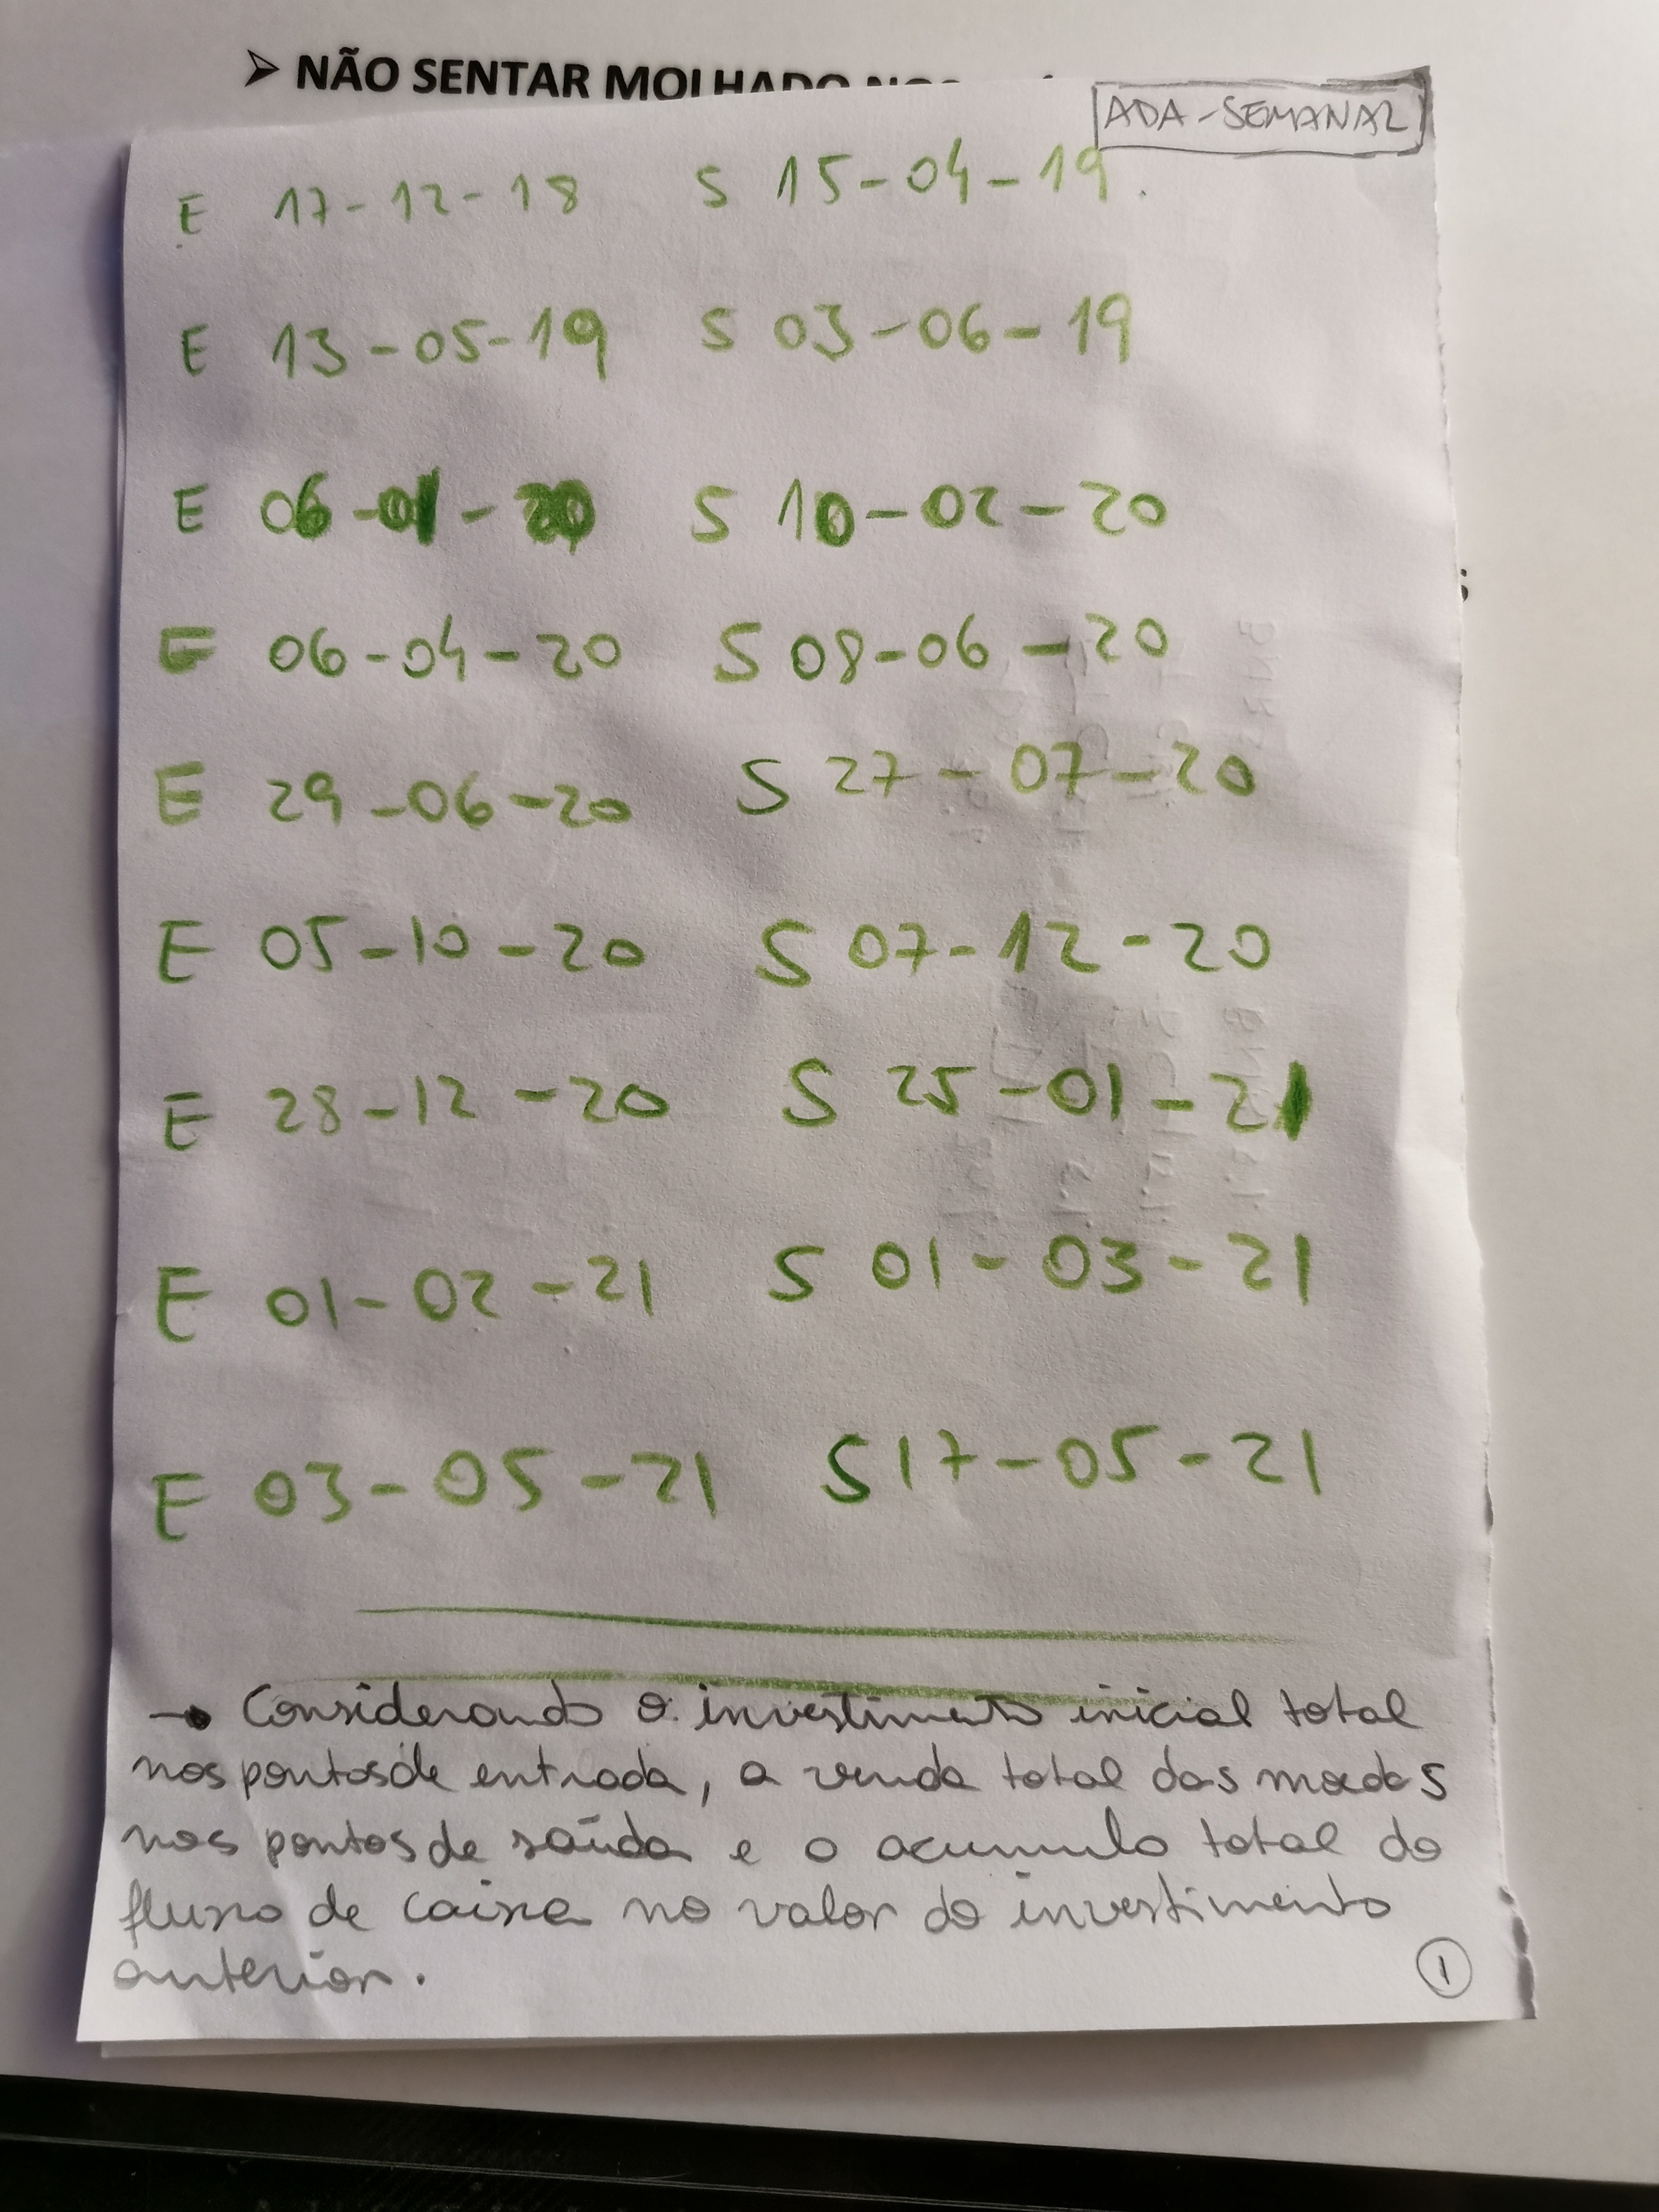 ➤ NÃO SENTAR MOLHADO
ADA - SEMANAL
E 17-12-18 S 15-04-19.
E 13-05-19 S 03-06-19
E 06-01-20 S 10-02-20
E 06-04-20 S 08-06-20
E 29-06-20 S 27-07-20
E 05-10-20 S 07-12-20
E 28-12-20 S 25-01-21
E 01-02-21 S 01-03-21
E 03-05-21 S 17-05-21
→ Considerando o investimento inicial total
nos pontos de entrada, a venda total das moedas
nos pontos de saída e o acumulo total do
fluxo de caixa no valor do investimento
anterior.
1